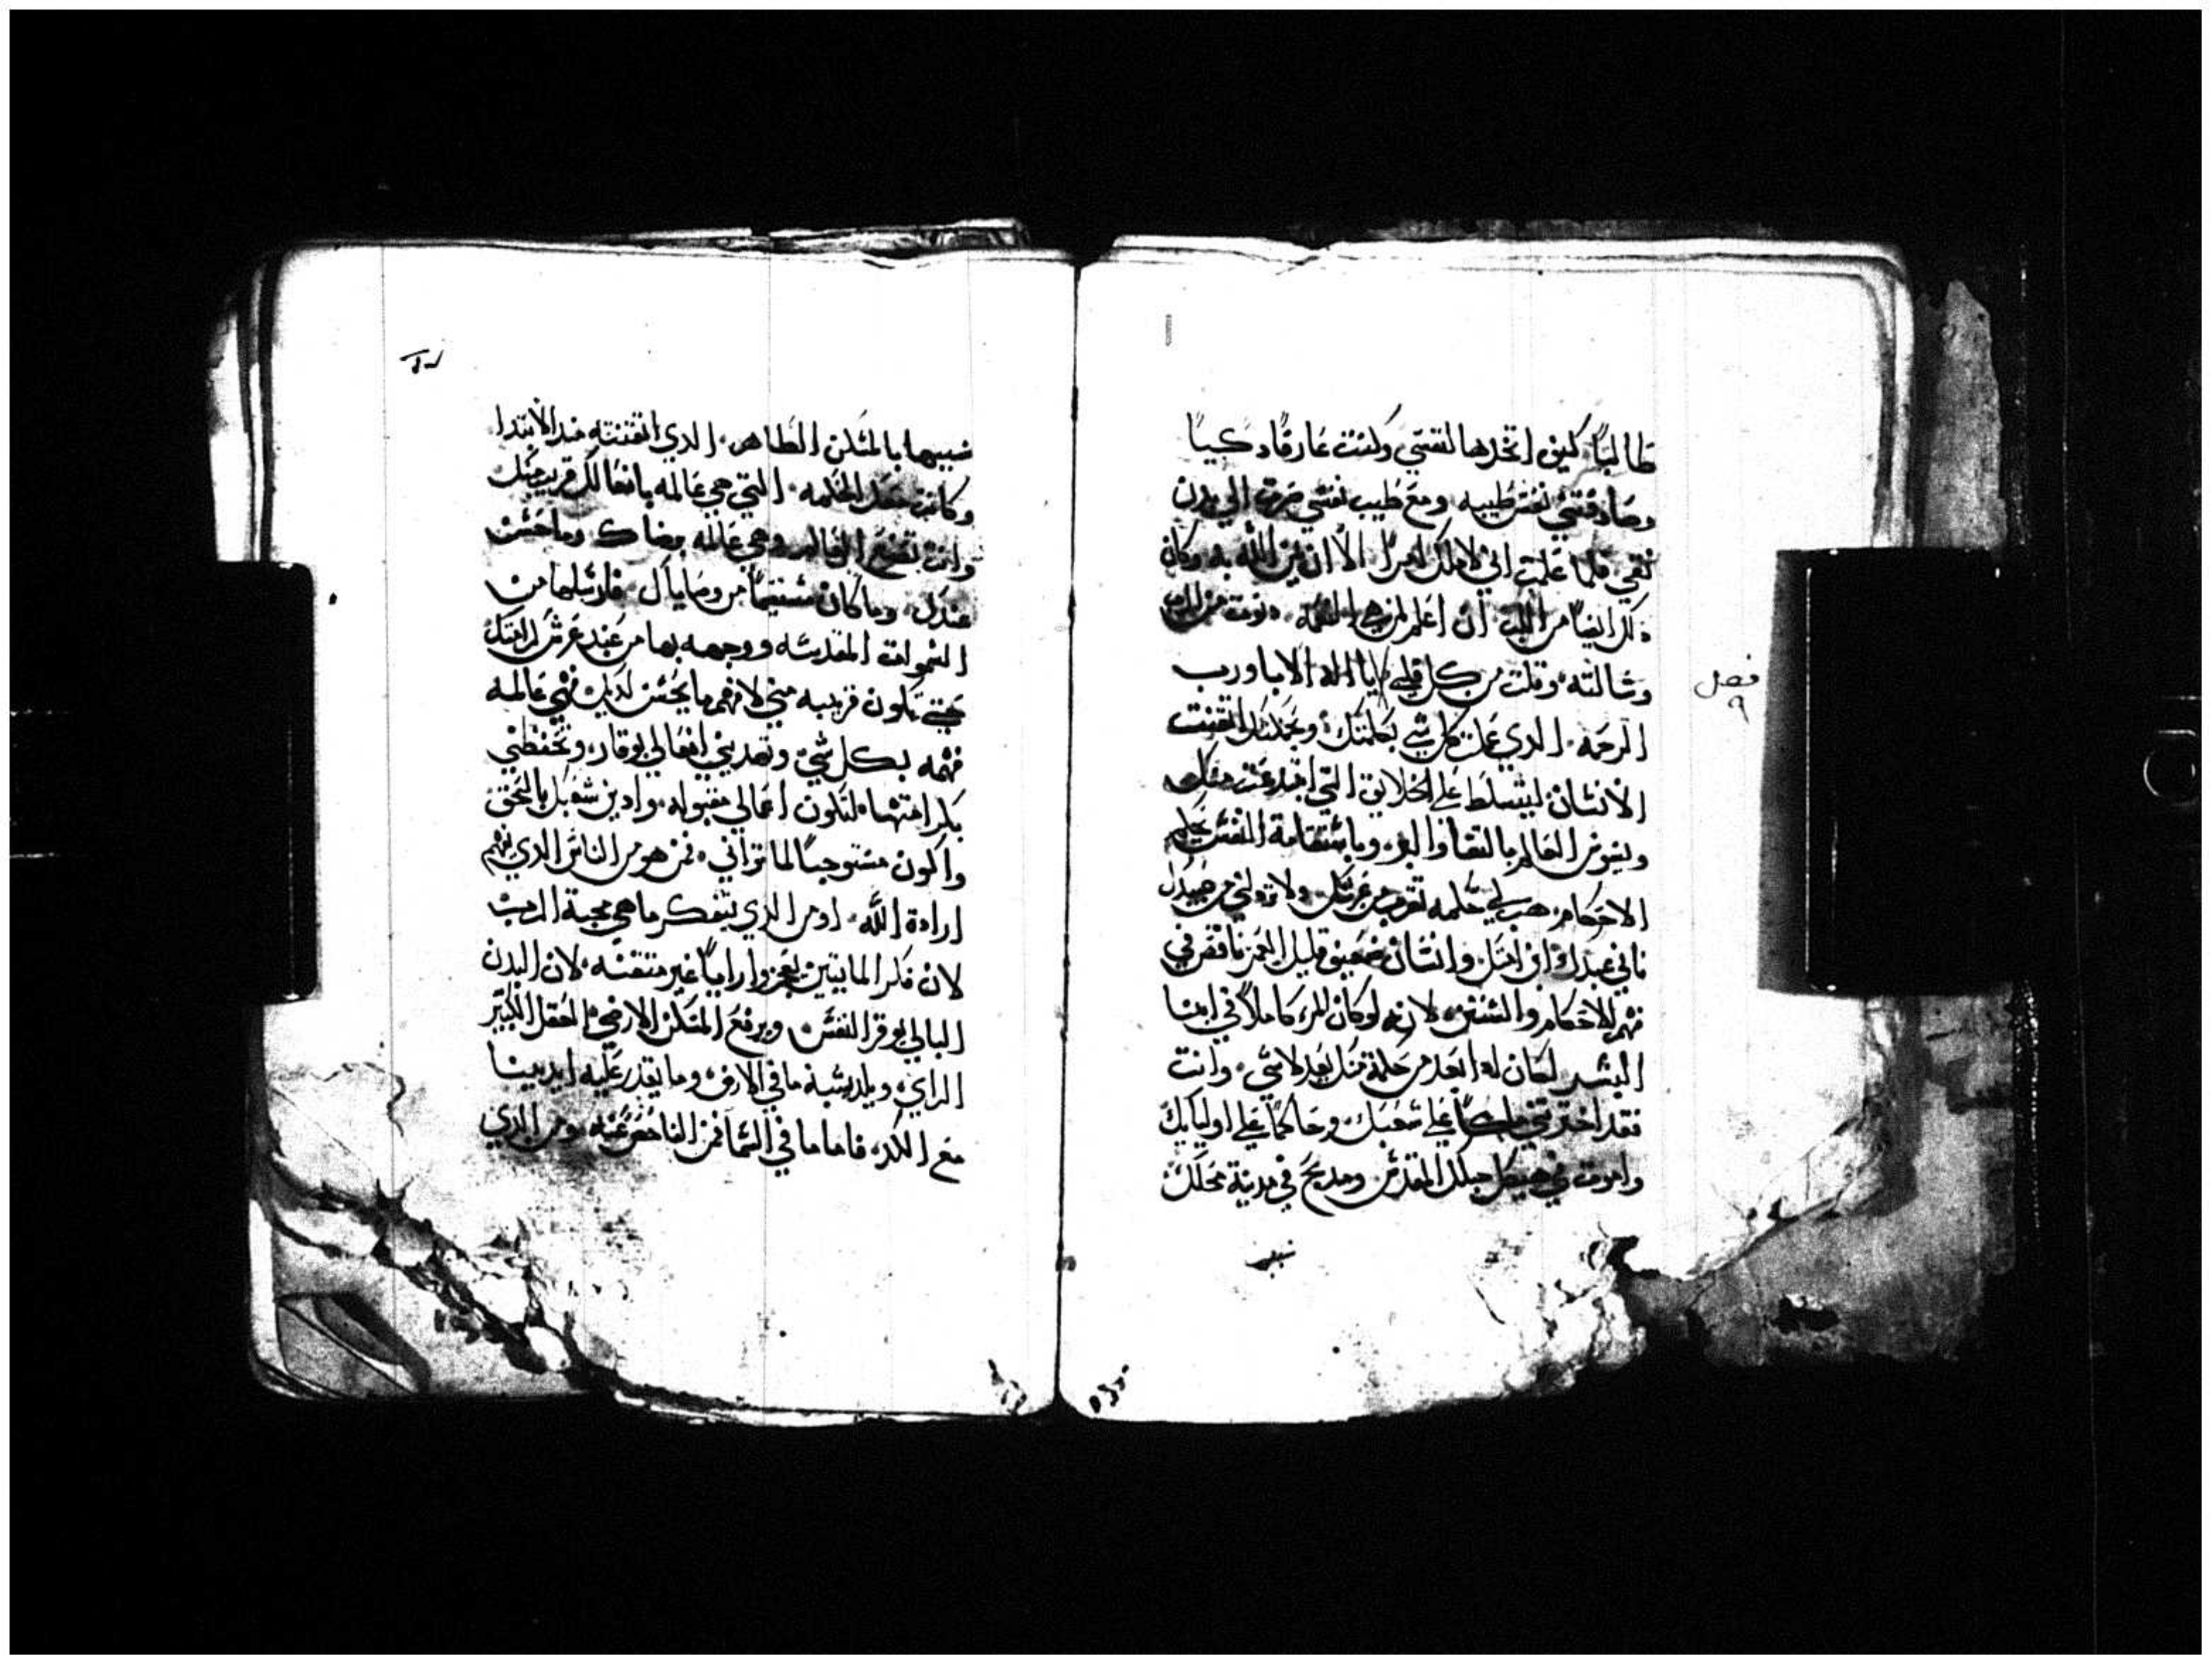 طالبًا كيف اتخدها لنفسي وكنت عارفًا دكيًا
وصادفتني نفس طيبه ومع طيب نفسي صرت الي بدن
نقي فلما علمت اني لا املك امرًا الا ان يمن الله به وكان
دلك ايضًا من اللب ان اعلم لمن هي النعمه
وسالته وقلت من كل قلبي يا اله الابا ورب
فصل
٩
الرحمه الدي عملت كل شي بكلمتك وبحكمتك اتقنت
الانسان ليتسلط علي الخلايق التي ابتدعت منك
ويسوس العالم بالنقا والبر وباستقامة النفس يحكم
الاحكام هب لي حكمه تقرب من عرشك ولا تردلني من عبيدك
فاني عبدك ابن امتك وانسان ضعيف قليل العمر ناقص في
فهم الاحكام والسنن لانه لو كان المر كاملًا في ابنا
البشر لكان اذا بعد من حكمة منك يعد لا شي وانت
فقد اخترتني ملكًا علي شعبك وحاكمًا علي اوليايك
وامرت في هيكل جبلك المقدس ومدبح في مدينة محلك
شبيـ
شبيها بالمسكن الطاهر الدي اتقنته مند الابتدا
وكانت عندك الحكمه التي هي عالمه بافعالك قريب منك
وانت تصنع العالم وهي عالمه برضاك وما حسن
عندك وما كان مستقيمًا من وصاياك فارسلها من
السموات المقدسه ووجهه بها من عند عرش كرامتك
حتي تكون قريبه مني لافهم ما يحسن لديك فهي عالمه
فهمه بكل شي وتهديني افعالي بوقار وتحفظني
بكرامتها لتكون اعمالي مقبوله وادين شعبك بالحق
واكون مستوجبًا لما تراني فمن هو من الناس الدي يفهم
ارادة الله او من الدي يتفكر ما هي محبة الرب
لان فكر المايتين بعجز واراهمًا غير متقنه لان البدن
البالي يوقر النفس ويرفع المسكن الارضي العقل الكثير
الراي وبكد يشبه ما في الارض وما يقدر عليه ايدينا
مع الكد فاما ما في السما فمن الفاحص عنه ومن الدي